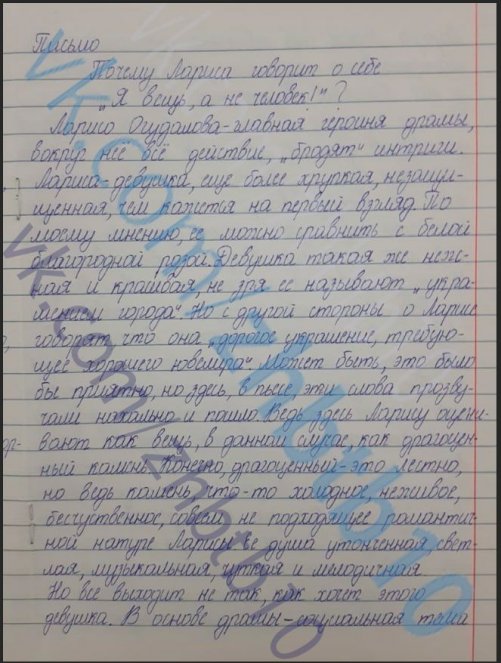 Письмо
Почему Лариса говорит о себе
„Я вещь, а не человек!"?
Лариса Огудалова-главная героиня драмы,
вокруг неё всё действие, „бродят" интриги.
Лариса-девушка, еще более хрупкая, незащи-
щенная, чем кажется на первый взгляд. По
моему мнению, ее можно сравнить с белой
благородной розой. Девушка такая же неж-
ная и красивая, не зря ее называют „укра-
шением города". Но с другой стороны о Ларисе
говорят, что она „дорогое украшение, требую-
щее хорошего ювелира". Может быть, это было
бы приятно, но здесь, в пьесе, эти слова прозву-
чали нахально и пошло. Ведь здесь Ларису оцени-
вают как вещь, в данной случае, как драгоцен-
ный камень. Конечно, драгоценный-это лестно,
но ведь камень, что-то холодное, неживое,
бесчуственное, совсем не подходящее романтич-
ной натуре Ларисы. Ее душа утонченная, свет-
лая, музыкальная, чуткая и мелодичная.
Но все выходит не так, как хочет этого
девушка. В основе драмы-социальная тема
vk.com/znblbno
vk.com/znblbno